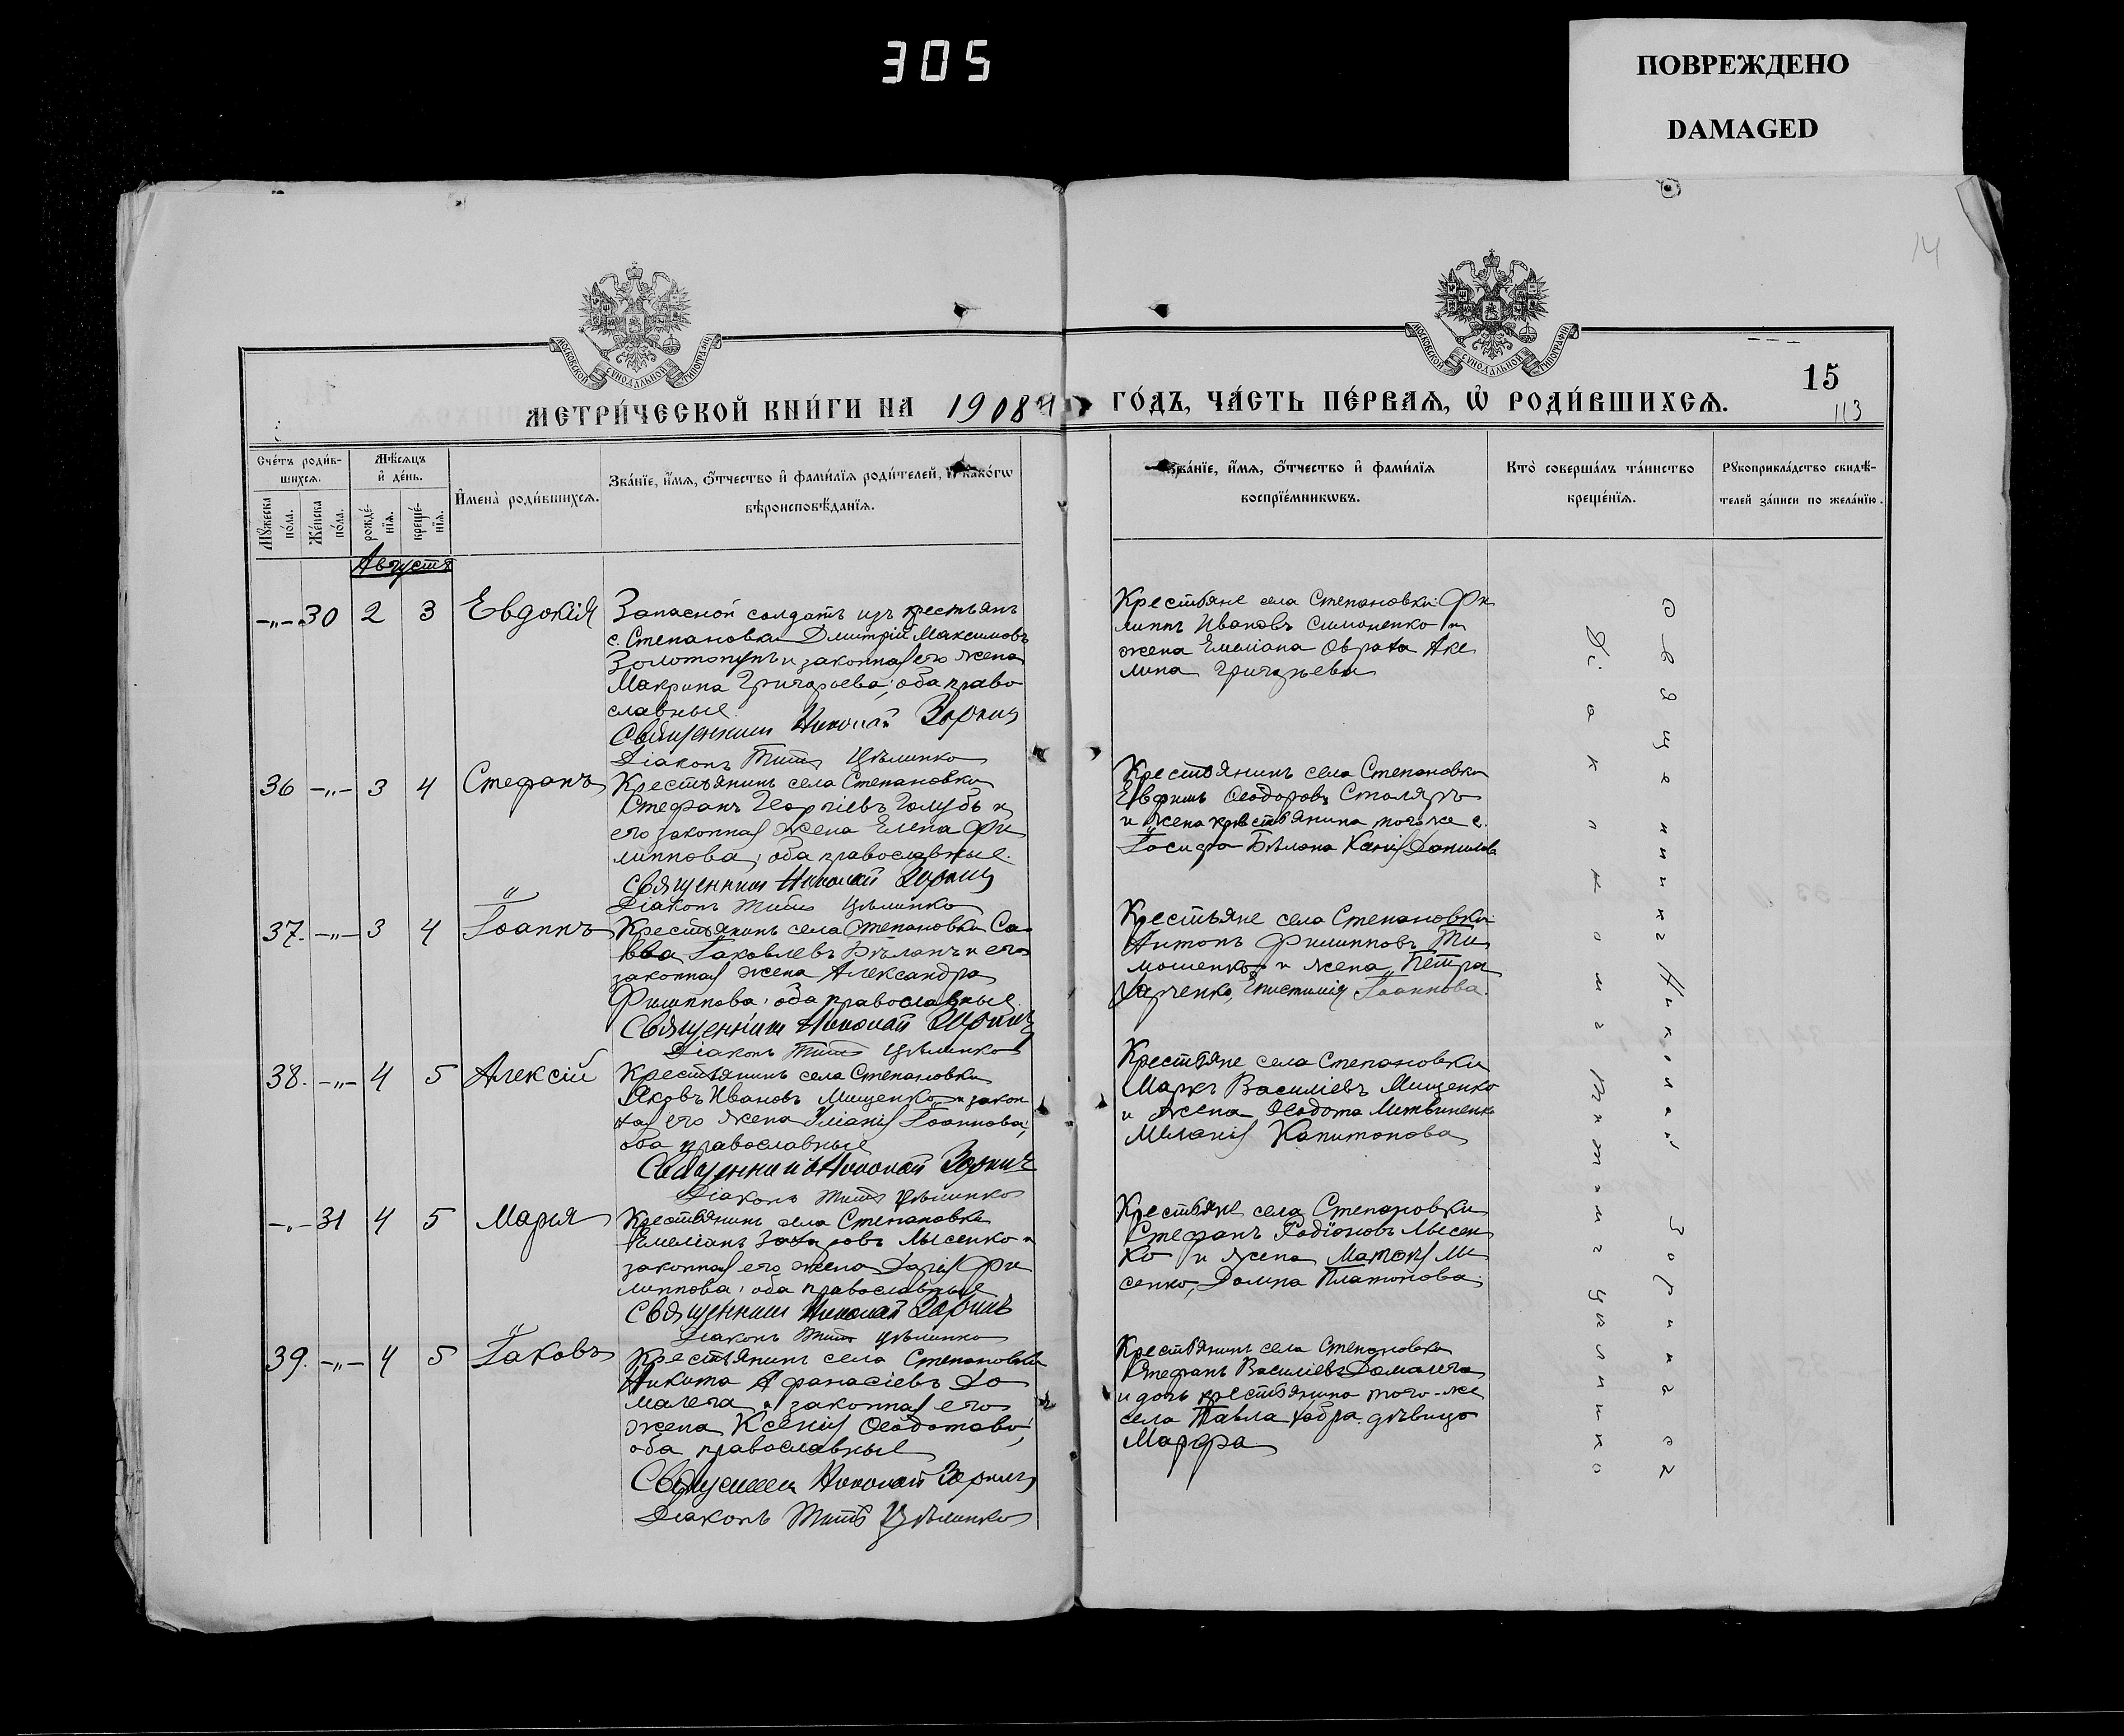 305
ПОВРЕЖДЕНО
DAMAGED
14
МОСКОВСКОЙ СѴНОДАЛЬНОЙ ТИПОГРАФІИ
МОСКОВСКОЙ СѴНОДАЛЬНОЙ ТИПОГРАФІИ
МЕТРИ́ЧЕСКОЙ КНИ́ГИ НА 1908 ГО́ДЪ, ЧА́СТЬ ПЕ́РВАѦ, Ѡ҆ РОДИ́ВШИХСѦ.
15
113
Счетъ роди́в-
шихсѧ.
Мꙋжеска
по́ла.
Же́нска
по́ла.
Мѣ́сѧцъ
и҆ де́нь.
рожде́-
нїѧ.
креще́-
нїѧ.
И҆мена̀ роди́вшихсѧ.
Зва́нїе, и҆́мѧ, ѻ҆́тчество и҆ фамн́лїѧ роди́телей, и҆ како́гѡ
вѣроисповѣ́данїѧ.
Зва́нїе, и҆́мѧ, ѻ҆́тчество и҆ фами́лїѧ
воспрїе́мникѡвъ.
Кто̀ соверша́лъ та́инство
креще́нїѧ.
Рꙋкоприкла́дство свидѣ́-
телей за́писи по жела́нїю.
Августъ
-"- 30 2 3 Евдокія
Запасной солдатъ изъ крестьянъ
с. Степановки Дмитрій Максимовъ
Золотопупъ и законная его жена
Макрина Григорьева; оба право
славные.
Священникъ Николай Зорничъ
Діаконъ Титъ Цѣлинко
Крестьяне села Степановки: Фи
липпъ Ивановъ Симоненко и
жена Емеліана Аки
лина Григорьева
36 -"- 3 4 Стефанъ
Крестьянинъ села Степановки
Стефанъ Георгіевъ Голубъ и
его законная жена Елена Фи
липпова; оба православные.
Священникъ Николай Зорничъ
Діаконъ Титъ Цѣлинко
Крестьянинъ села Степановки
Евфимъ Ѳеодоровъ Столяръ
и жена крестьянина того же с.
Іосифа Бѣлана Данилова
37. -"- 3 4 Іоаннъ
Крестьянинъ села Степановки Са
вва Іаковлевъ Бѣланъ и его
законная жена Александра
Филиппова; оба православные.
Священникъ Николай Зорничъ
Діаконъ Титъ Цѣлинко
Крестьяне села Степановки:
Антонъ Филипповъ Ти
мошенко и жена Петра
Харченко, Епистимія Іоаннова.
38. -"- 4 5 Алексій
Крестьянинъ села Степановки
Яковъ Ивановъ Мищенко и закон
ная его жена Уліанія Іоаннова;
оба православные
Священникъ Николай Зорничъ
Діаконъ Титъ Цѣлинко
Крестьяне села Степановки
Маркъ Василіевъ Мищенко
и жена Ѳеодота Литвиненко
Меланія Капитонова
-"- 31 4 5 Марья
Крестьянинъ села Степановки
Емеліанъ Захаровъ Лысенко и
законная его жена Дарія Фи
липпова; оба православные
Священникъ Николай Зорничъ
Діаконъ Титъ Цѣлинко
Крестьяне села Степановки
Стефанъ Родіоновъ Лысен
ко и жена Ли
сенко, Домна Платонова.
39. -"- 4 5 Іаковъ
Крестьянинъ села Степановки
Никита Афанасіевъ До
малега и законная его
жена Ксенія Ѳеодотова;
оба православные
Священникъ Николай Зорничъ
Діаконъ Титъ Цѣлинко
Крестьянинъ села Степановки
Стефанъ Василіевъ Домалега
и дочь крестьянина того-же
села Павла дѣвица
Марфа
Священникъ Николай Зорничъ съ
Діакономъ Титомъ Цѣлинко